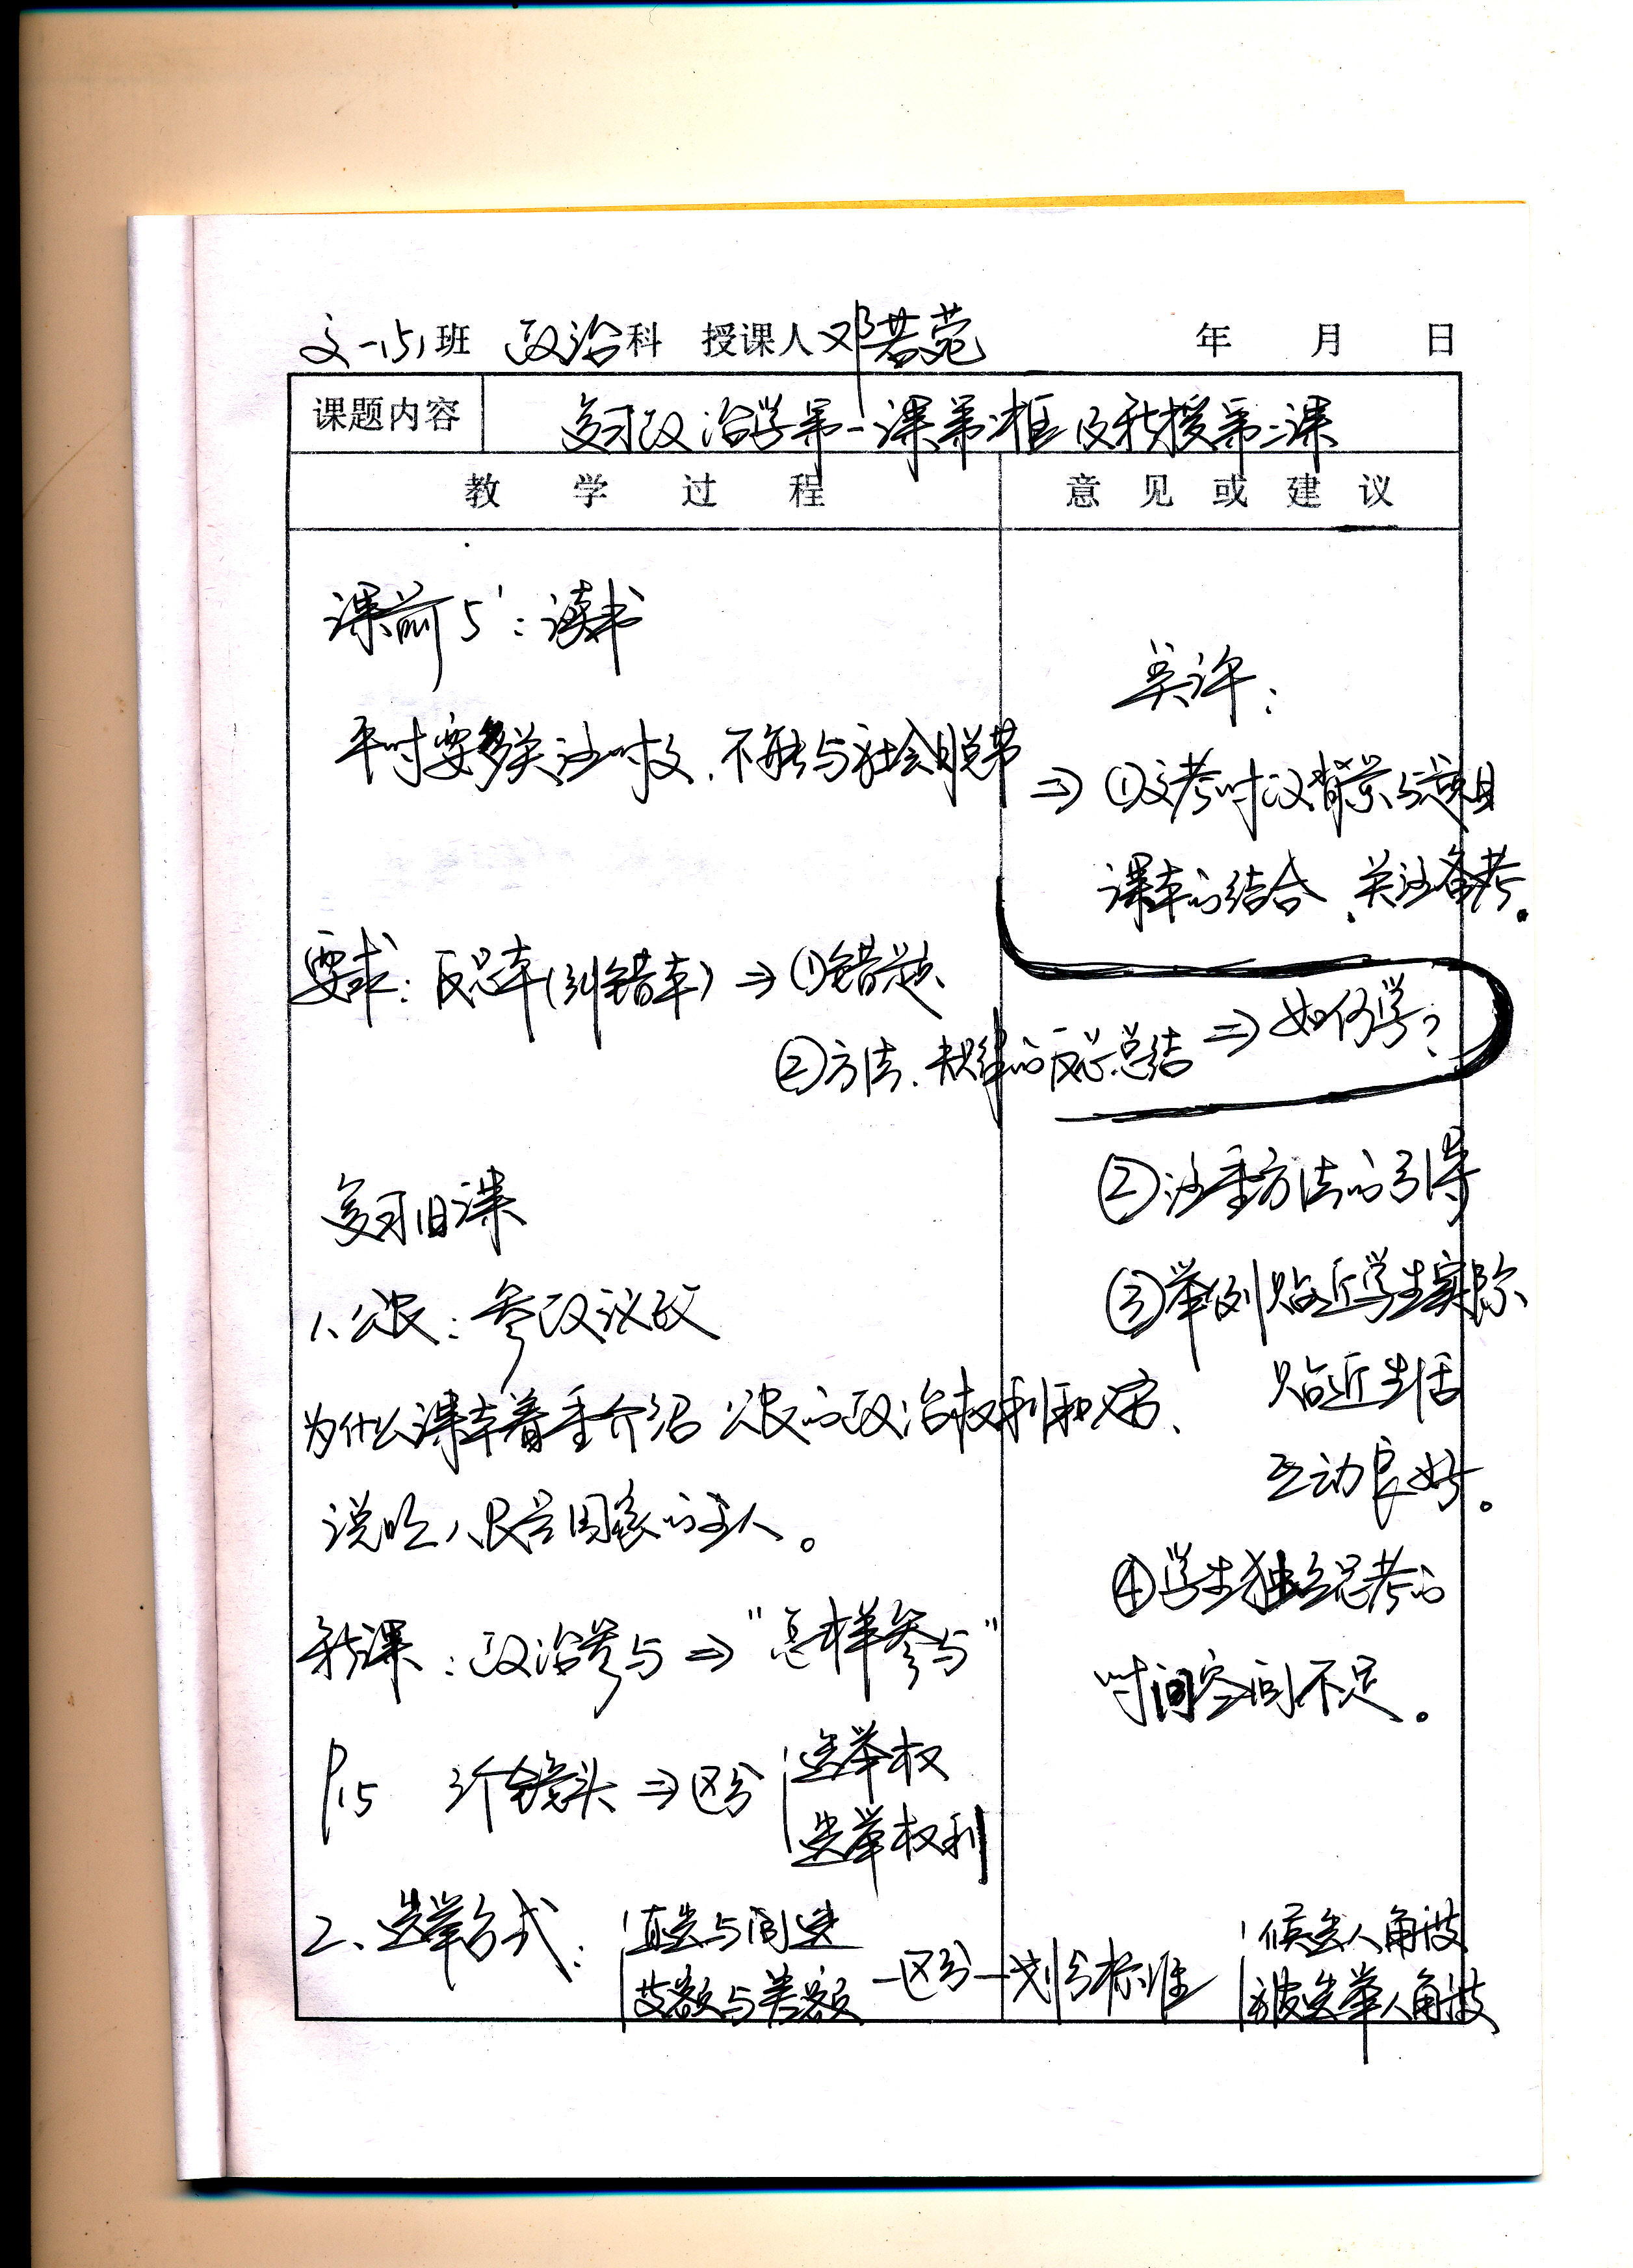 高一(5)班 政治科 授课人 邓若菀 年 月 日
课题内容 复习政治学第一课第二框及新授第二课
教学过程 意见或建议
课前5':读书
平时要多关注时政、不能与社会脱节
要求:反思本(纠错本)⇒①错题
②方法、规律的反思总结⇒如何学?
复习旧课
1、公民:参政议政
为什么课本着重介绍公民的政治权利和义务、
说明人民是国家的主人。
新课:政治参与⇒"怎样参与"
P15 3个镜头⇒区分 选举权
选举权利
2、选举方式: 直选与间选
等额与差额 —区分—划分标准 候选人角度
被选举人角度
⇒①文考时政背景与题目
课本的结合、关注备考。
②注重方法的引导
③举例贴近学生实际
贴近生活
互动良好。
④学生独立思考的
时间空间不足。